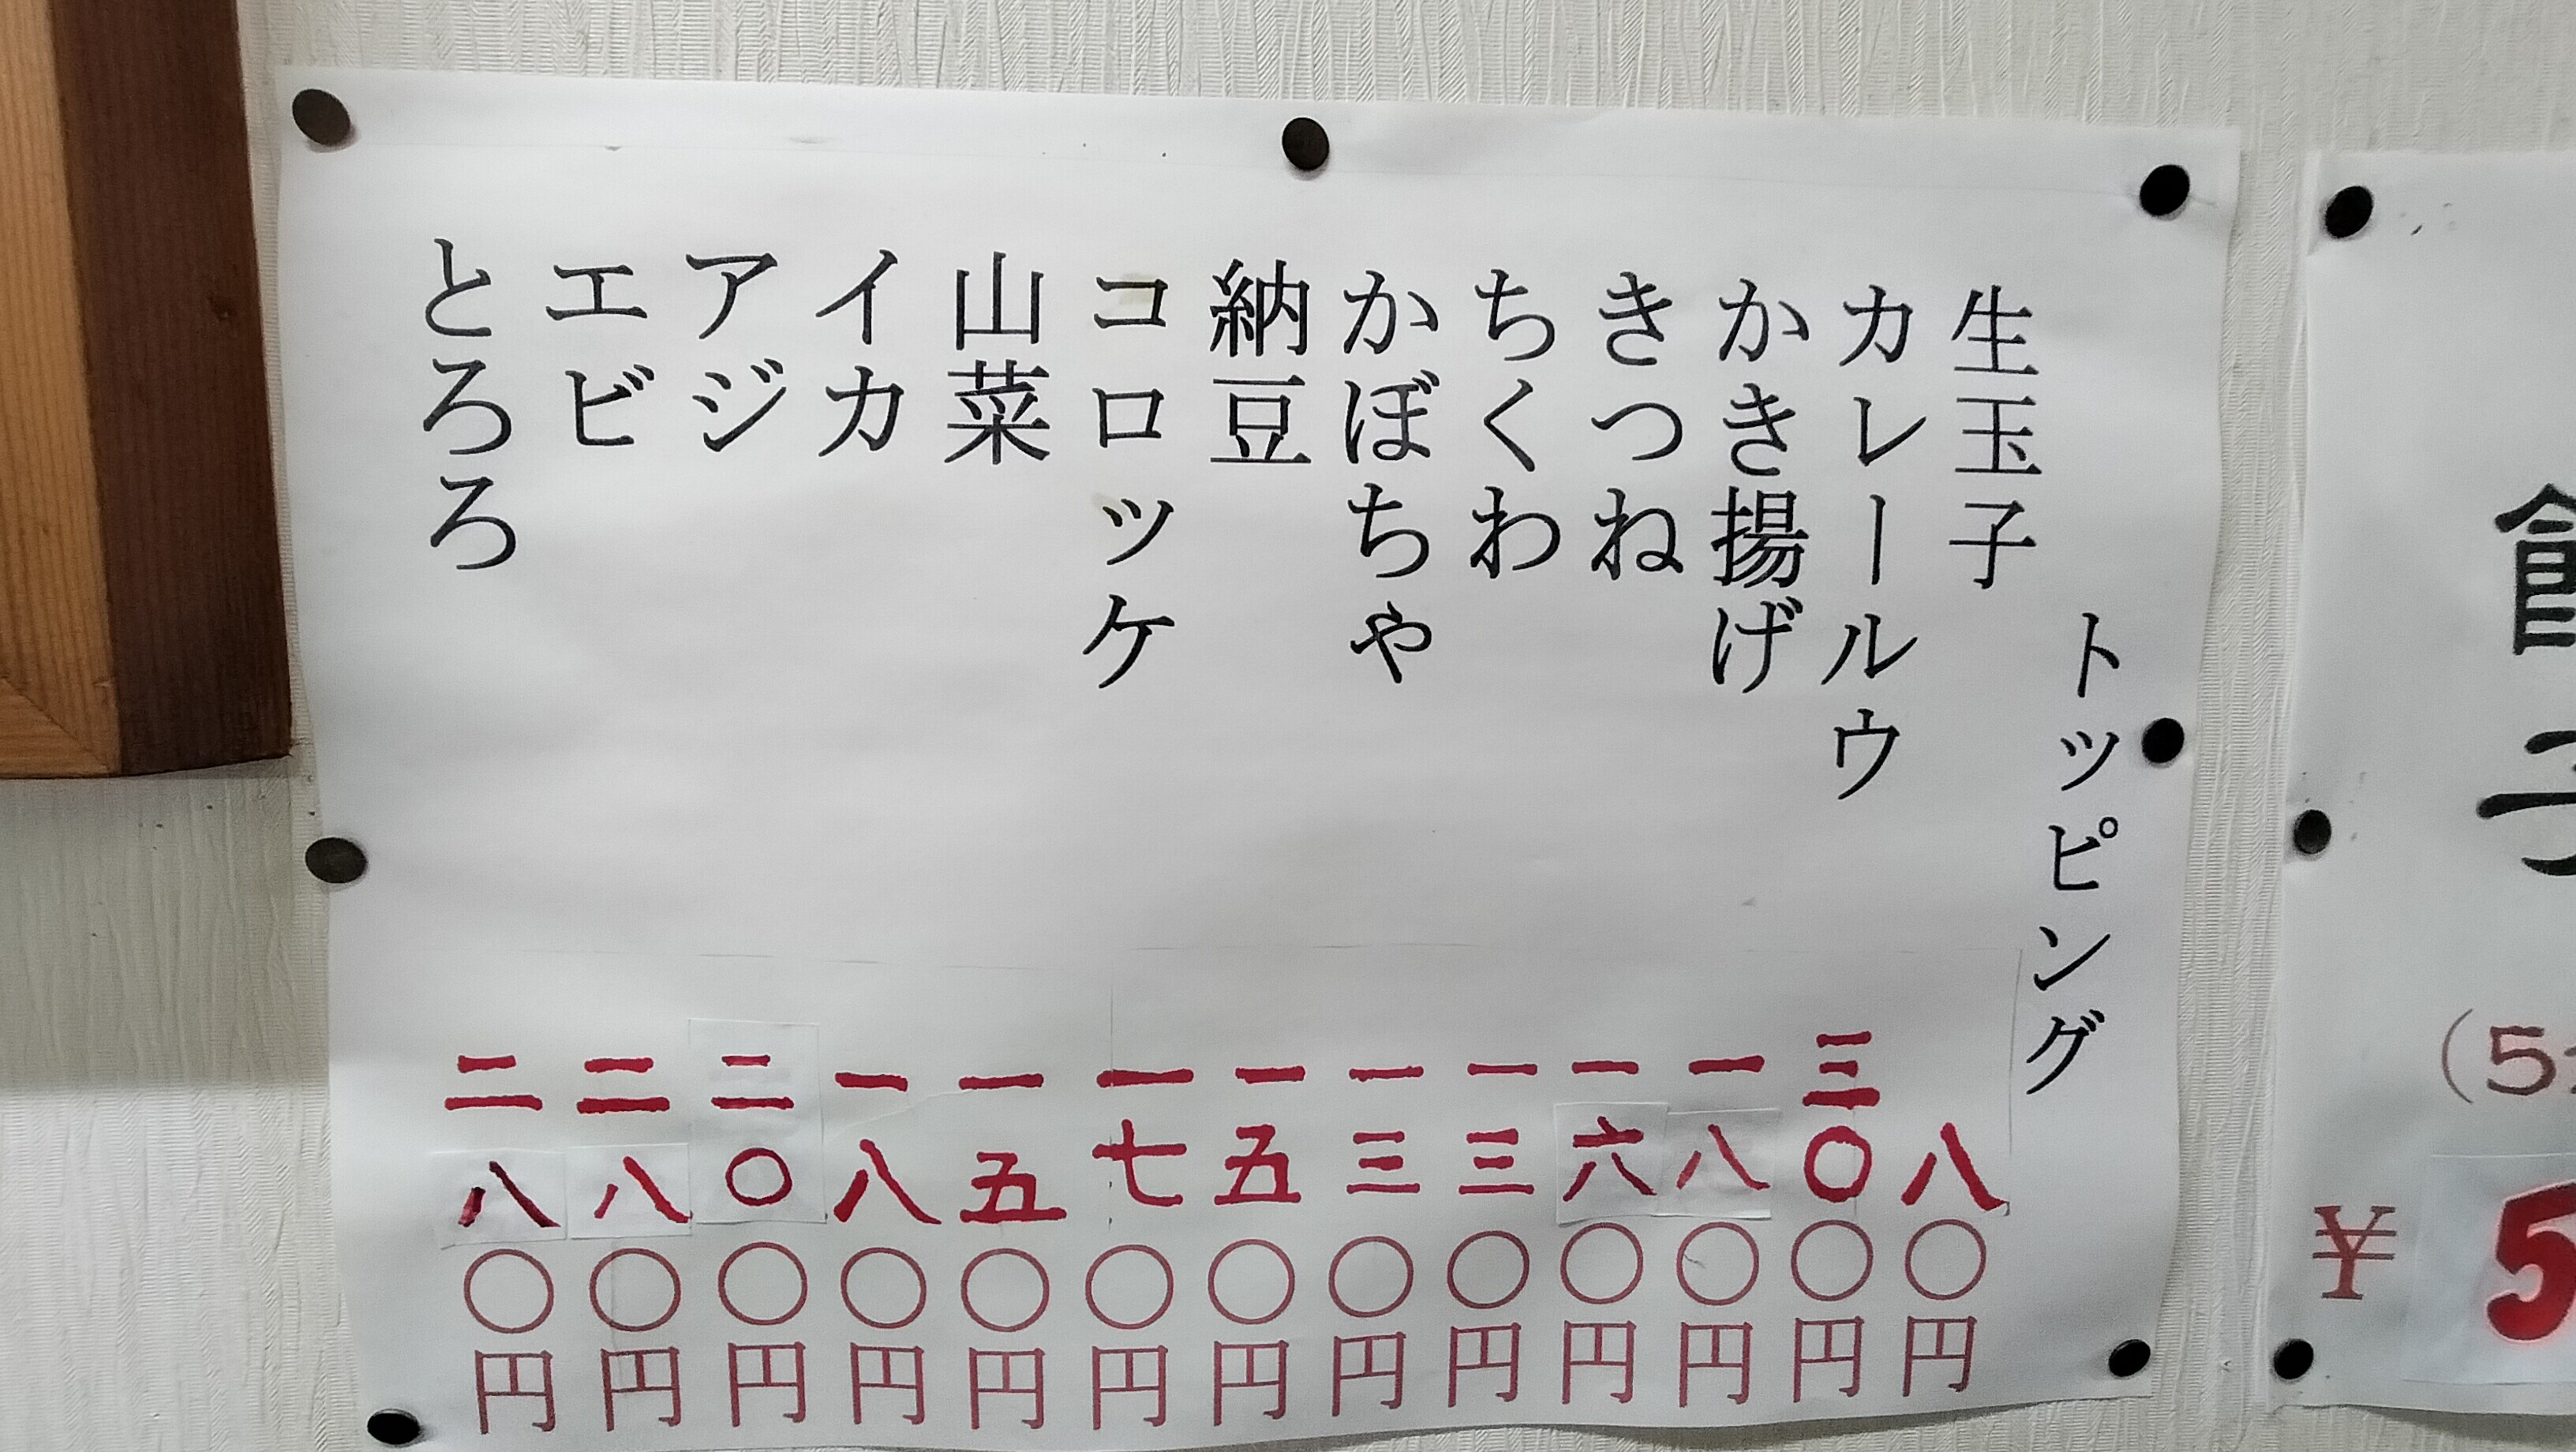 トッピング
生玉子 八〇円
カレールウ 三〇〇円
かき揚げ 一八〇円
きつね 一六〇円
ちくわ 一三〇円
かぼちゃ 一三〇円
納豆 一五〇円
コロッケ 一七〇円
山菜 一五〇円
イカ 一八〇円
アジ 二〇〇円
エビ 二八〇円
とろろ 二八〇円
(5
¥5